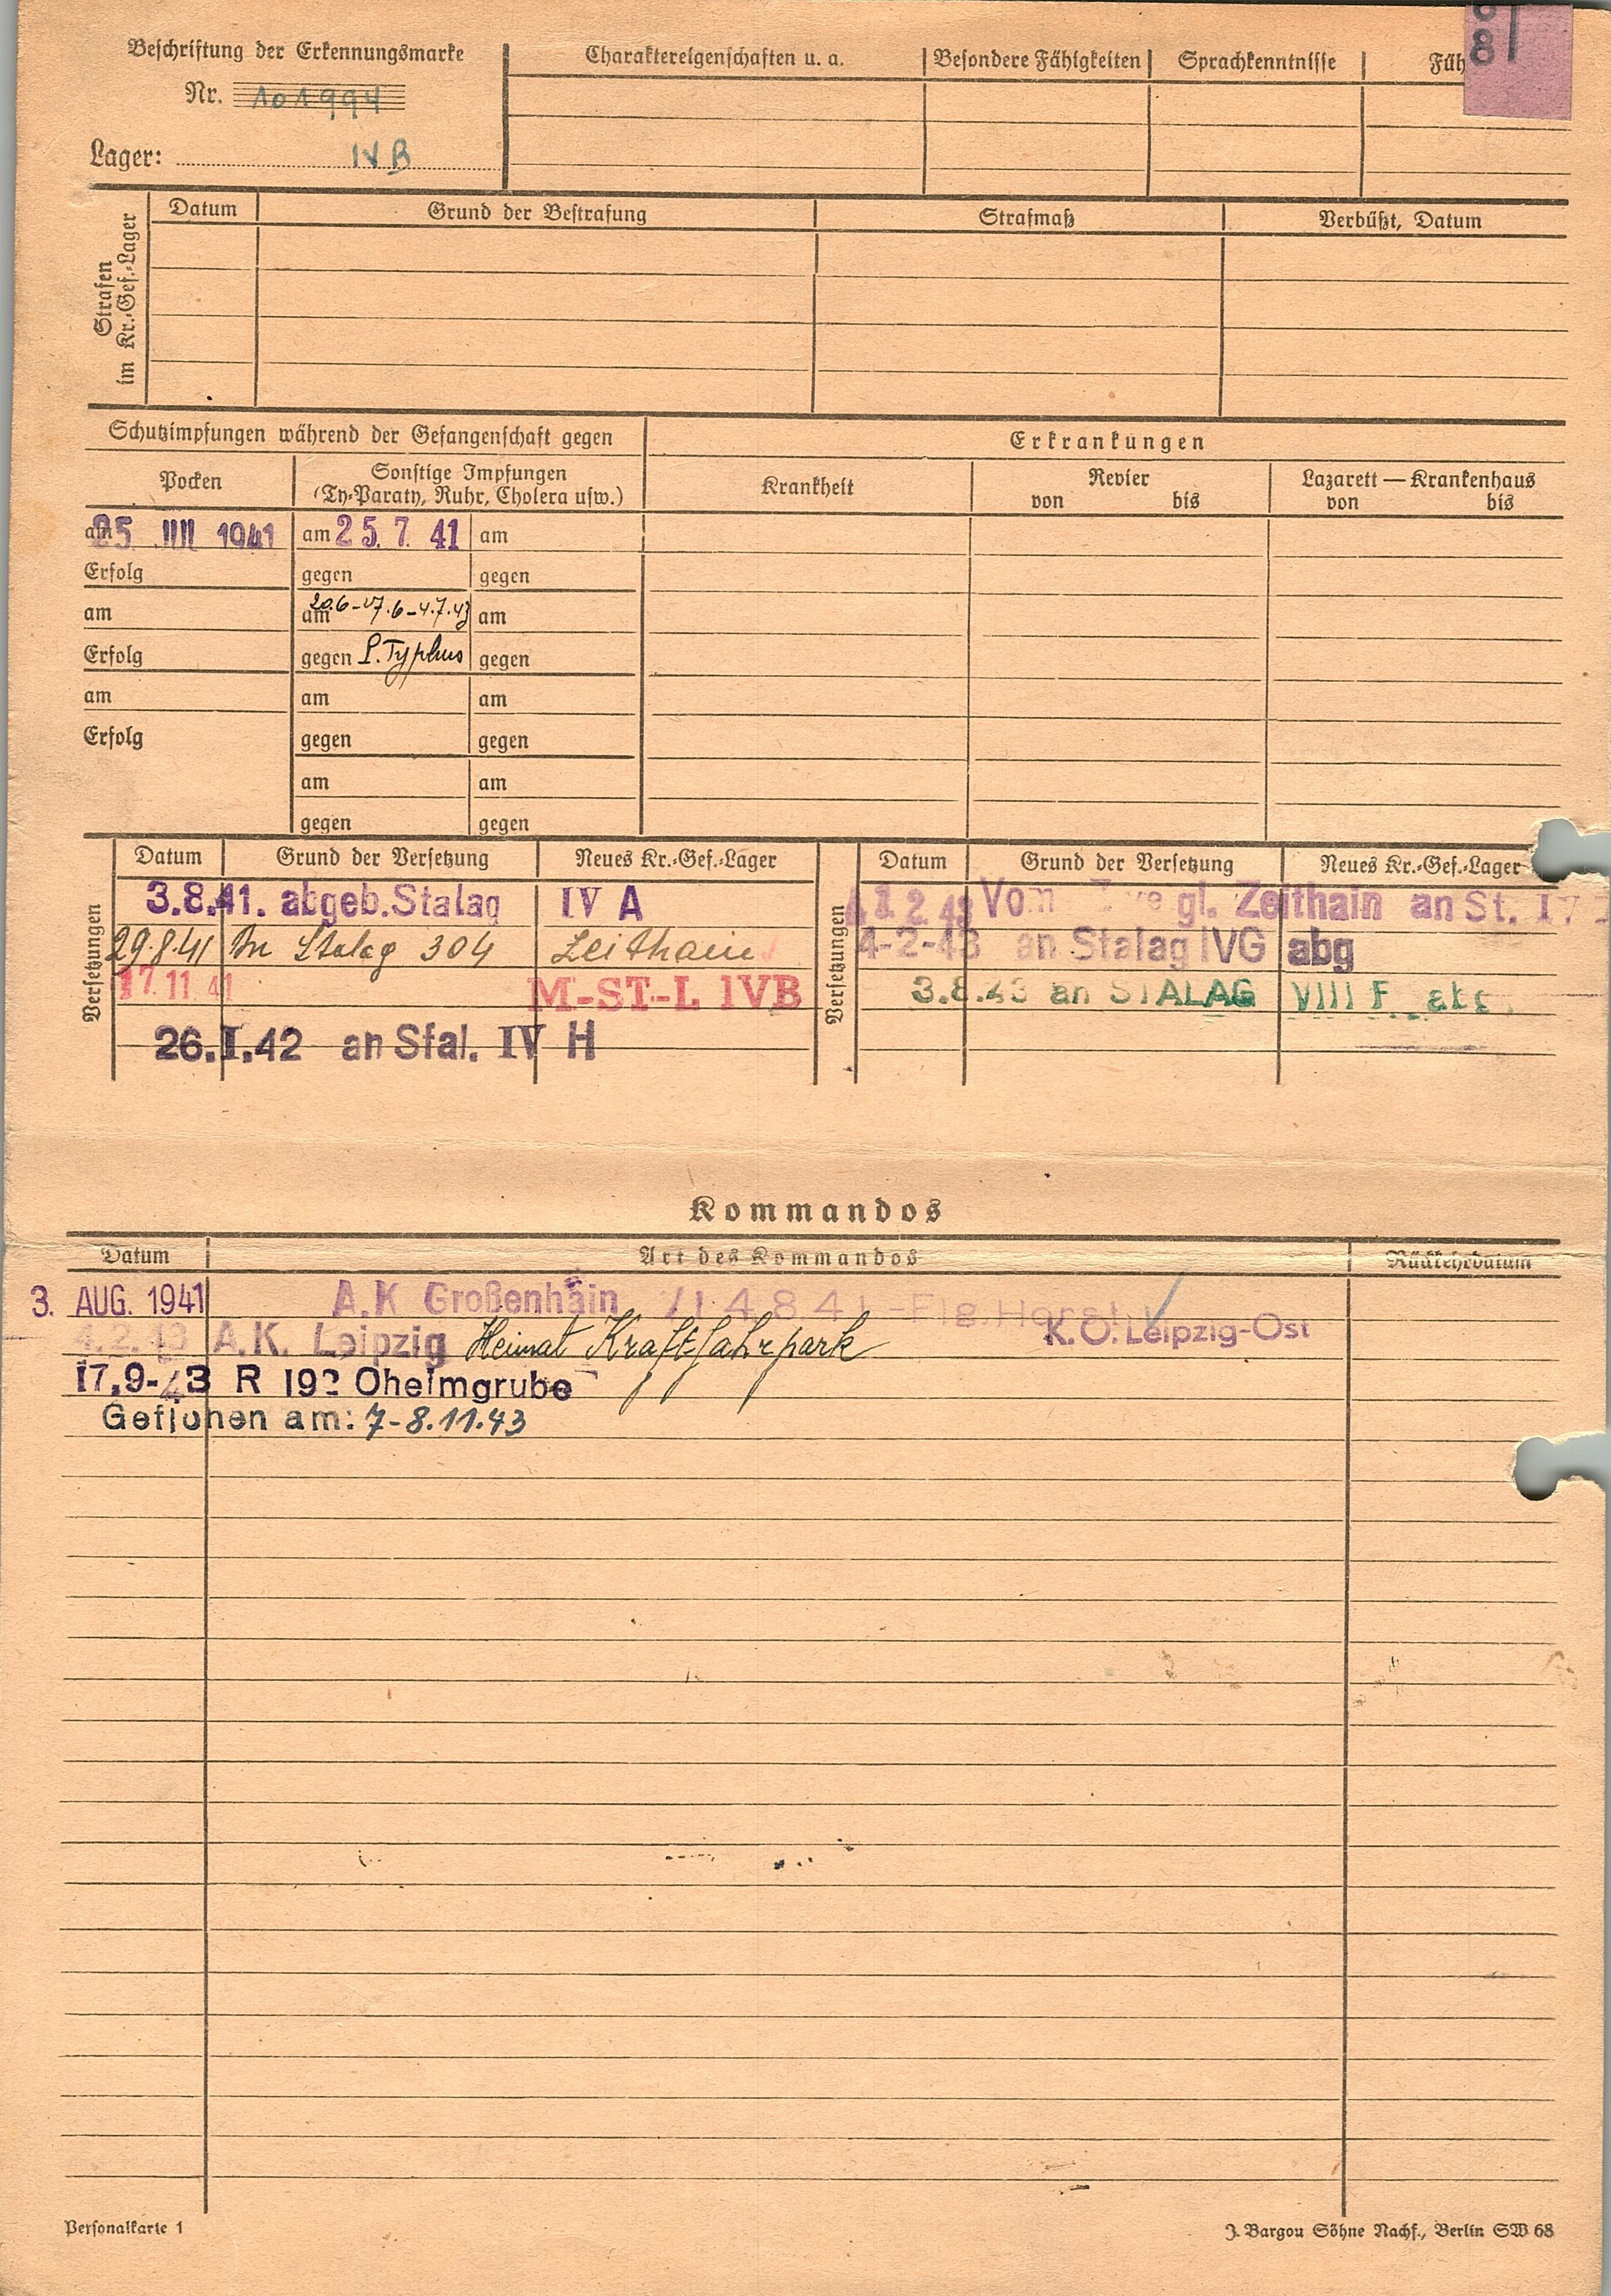 Beschriftung der Erkennungsmarke
Nr. 101994
Lager: IV B
Charaktereigenschaften u. a. Besondere Fähigkeiten Sprachkenntnisse Füh
8
Strafen im Kr.-Gef.-Lager
Datum Grund der Bestrafung Strafmaß Verbüßt, Datum
Schutzimpfungen während der Gefangenschaft gegen
Erkrankungen
Pocken
Sonstige Impfungen
(Ty-Paraty, Ruhr, Cholera usw.)
Krankheit
Revier
von bis
Lazarett — Krankenhaus
von bis
am 25 1941 am 25. 7. 41 am
Erfolg gegen gegen
am am 20.6-27.6-4.7.43 am
Erfolg gegen P. Typhus gegen
am am am
Erfolg gegen gegen
am am
gegen gegen
Versetzungen
Datum Grund der Versetzung Neues Kr.-Gef.-Lager
3.8.41. abgeb. Stalag IV A
29.8.41 In Stalag 304 Zeithain
17.11.41 M-ST-L IVB
26.I.42 an Stal. IV H
Versetzungen
Datum Grund der Versetzung Neues Kr.-Gef.-Lager
2. 43 Vom gl. Zeithain an St.
4-2-43 an Stalag IVG abg
3.8.43 an STALAG VIII F.
Kommandos
Datum Art des Kommandos Rückkehrdatum
3. AUG. 1941 A.K Großenhain 4841 -Flg.Horst
4.2.43 A.K. Leipzig Heimat Kraftfahrpark K.O. Leipzig-Ost
17.9-43 R 192 Oheimgrube
Geflohen am: 7-8.11.43
Personalkarte 1
J. Bargou Söhne Nachf., Berlin SW 68